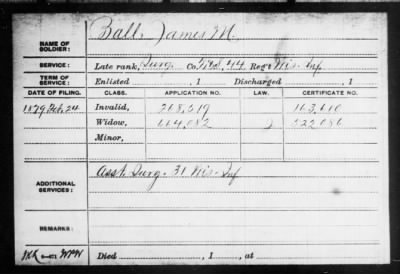 NAME OF SOLDIER: Ball, James M.
SERVICE: Late rank, Surg. Co. F&S, 44 Reg't Wis. Inf
TERM OF SERVICE: Enlisted , 1 Discharged , 1
DATE OF FILING. CLASS. APPLICATION NO. LAW. CERTIFICATE NO.
1879 Feb. 24 Invalid, 268,519 163,610
Widow, 664,082 322,086
Minor,
ADDITIONAL SERVICES: Asst. Surg. 31 Wis. Inf
REMARKS:
Died , 1 , at